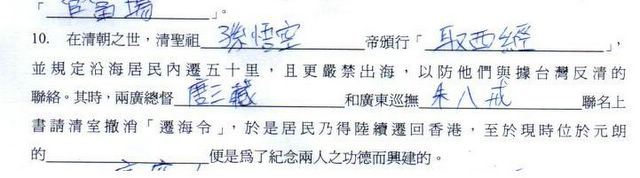 「官富場」。
10. 在清朝之世，清聖祖 孫悟空 帝頒行「 取西經 」，
並規定沿海居民內遷五十里，且更嚴禁出海，以防他們與據台灣反清的
聯絡。其時，兩廣總督 唐三藏 和廣東巡撫 朱八戒 聯名上
書請清室撤消「遷海令」，於是居民乃得陸續遷回香港，至於現時位於元朗
的 便是爲了紀念兩人之功德而興建的。